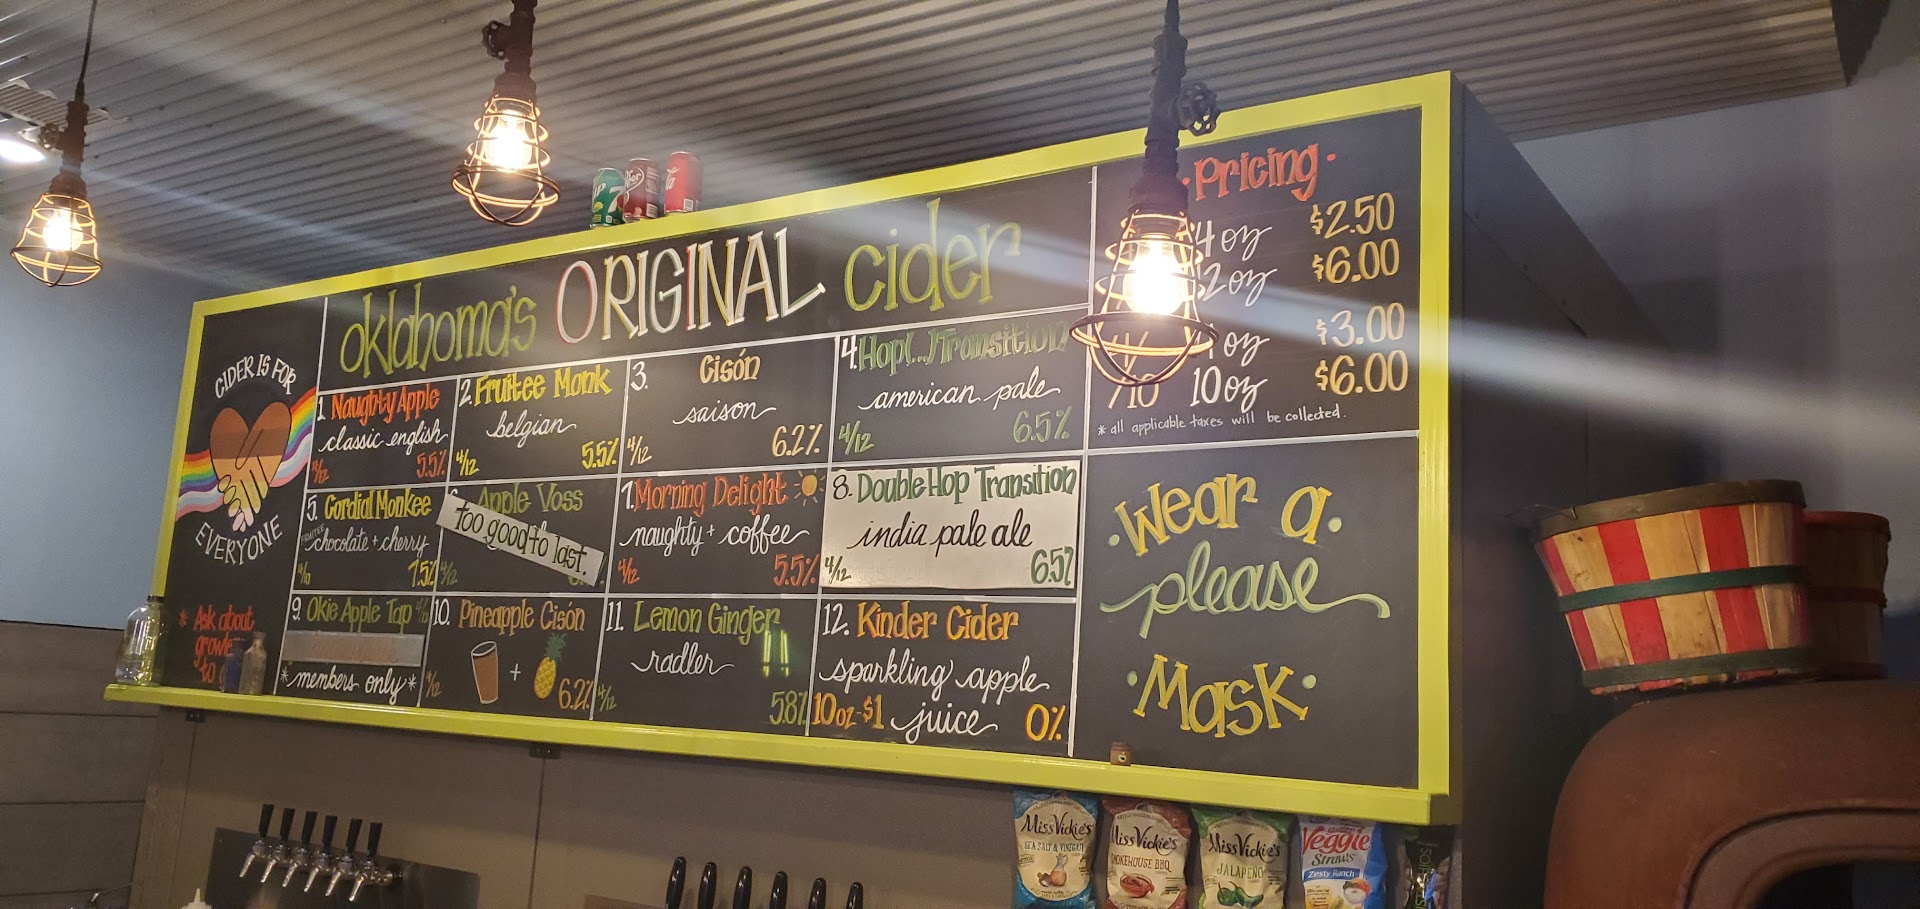 CIDER IS FOR
EVERYONE
* Ask about
to
oklahoma's ORIGINAL cider
1 Naughty Apple
classic english
4/12 5.5%
2. Fruitee Monk
belgian
4/12 5.5%
3. Cisón
saison
4/12 6.2%
4. Hop(...)Transition
american pale
4/12 6.5%
5. Cordial Monkee
FRUITEE chocolate + cherry
7.5%
Apple Voss
too good to last.
4/12
7. Morning Delight
naughty + coffee
4/12 5.5%
8. Double Hop Transition
india pale ale
4/12 6.5%
9. Okie Apple Tap
*members only*
10. Pineapple Cisón
+
4/12 6.2%
11. Lemon Ginger
radler
4/12 5.8%
12. Kinder Cider
sparkling apple
10oz-$1 juice 0%
· Pricing ·
4 oz $2.50
2 oz $6.00
oz $3.00
10 oz $6.00
* all applicable taxes will be collected.
· Wear a ·
please
· Mask ·
Miss Vickie's
SEA SALT & VINEGAR
Miss Vickie's
SMOKEHOUSE BBQ
Miss Vickie's
JALAPEÑO
Veggie
Straws
Zesty Ranch